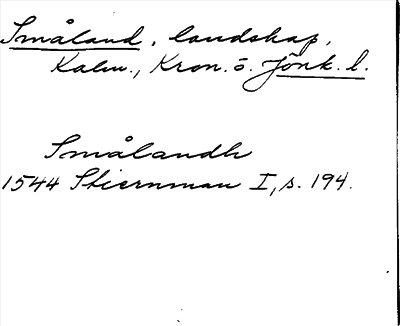 Småland, landskap,
Kalm., Kron. o. Jönk. l.
Smålandh
1544 Stiernman I, s. 194.